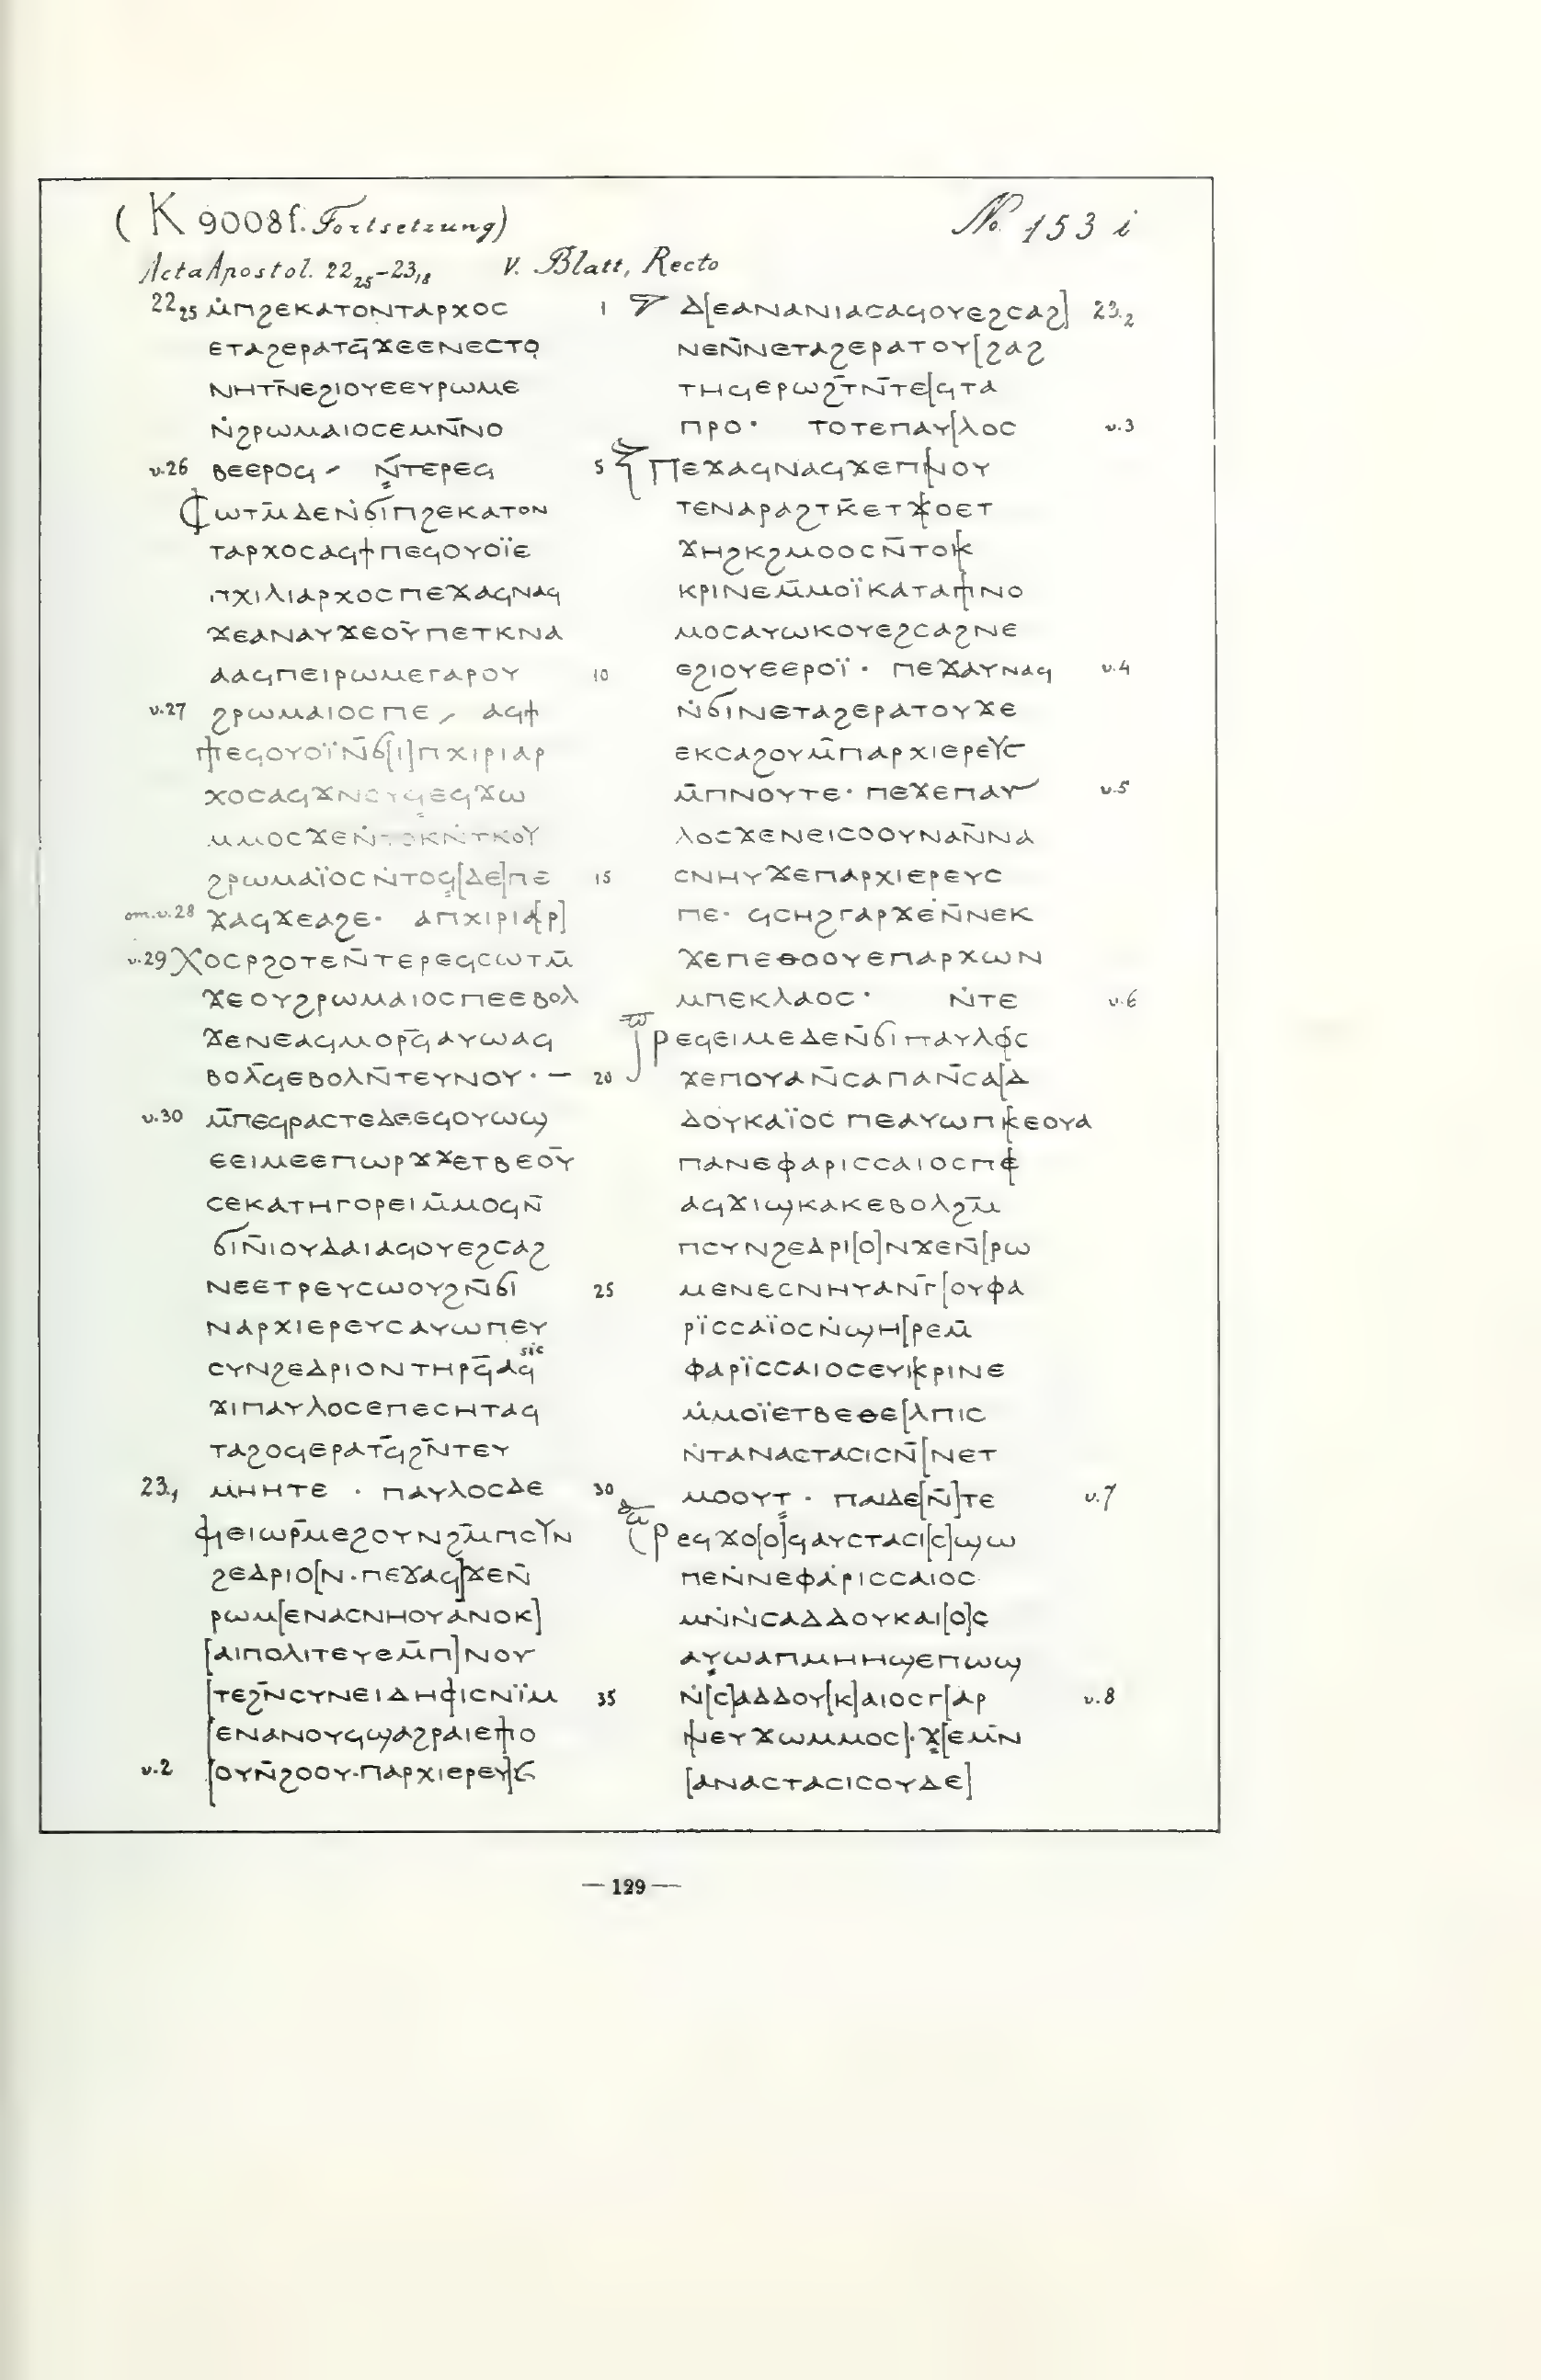 (K 9008f. Fortsetzung)
No. 153 i
Acta Apostol. 22₂₅-23,₁₈ V. Blatt, Recto
22₂₅ ⲙ̇ⲡϩⲉⲕⲁⲧⲟⲛⲧⲁⲣⲭⲟⲥ
ⲉⲧⲁϩⲉⲣⲁⲧϥ̄ϫⲉⲉⲛⲉⲥⲧⲟ
ⲛⲏⲧⲛ̄ⲉϩⲓⲟⲩⲉⲉⲩⲣⲱⲙⲉ
ⲛ̇ϩⲣⲱⲙⲁⲓⲟⲥⲉⲙⲛ̄ⲛⲟ
v.26 ⲃⲉⲉⲣⲟϥ ⸍ ⲛ̄ⲧⲉⲣⲉϥ
ⲥⲱⲧⲙ̄ⲇⲉⲛ̇ϭⲓⲡϩⲉⲕⲁⲧⲟⲛ
ⲧⲁⲣⲭⲟⲥⲁϥϯⲡⲉϥⲟⲩⲟⲓ̈ⲉ
ⲡⲭⲓⲗⲓⲁⲣⲭⲟⲥⲡⲉϫⲁϥⲛⲁϥ
ϫⲉⲁⲛⲁⲩϫⲉⲟⲩ̄ⲡⲉⲧⲕⲛⲁ
ⲁⲁϥⲡⲉⲓⲣⲱⲙⲉⲅⲁⲣⲟⲩ
v.27 ϩⲣⲱⲙⲁⲓⲟⲥⲡⲉ ⸝ ⲁϥϯ
ⲡⲉϥⲟⲩⲟⲓ̈ⲛ̄ϭ[ⲓ]ⲡⲭⲓⲣⲓⲁⲣ
ⲭⲟⲥⲁϥϫⲛⲟⲩϥⲉϥϫⲱ
ⲙⲙⲟⲥϫⲉⲛ̇ⲧⲟⲕⲛ̇ⲧⲕⲟⲩ̄
ϩⲣⲱⲙⲁⲓ̈ⲟⲥⲛ̇ⲧⲟϥ[ⲇⲉ]ⲡⲉ
om.v.28 ϫⲁϥϫⲉⲁϩⲉ· ⲁⲡⲭⲓⲣⲓⲁ[ⲣ]
v.29 ⲭⲟⲥⲣϩⲟⲧⲉⲛ̄ⲧⲉⲣⲉϥⲥⲱⲧⲙ̄
ϫⲉⲟⲩϩⲣⲱⲙⲁⲓⲟⲥⲡⲉⲉⲃⲟⲗ
ϫⲉⲛⲉⲁϥⲙⲟⲣϥ̄ⲁⲩⲱⲁϥ
ⲃⲟⲗϥ̄ⲉⲃⲟⲗⲛ̄ⲧⲉⲩⲛⲟⲩ · —
v.30 ⲙ̄ⲡⲉϥⲣⲁⲥⲧⲉⲇⲉⲉϥⲟⲩⲱϣ
ⲉⲉⲓⲙⲉⲉⲡⲱⲣϫϫⲉⲧⲃⲉⲟⲩ̄
ⲥⲉⲕⲁⲧⲏⲅⲟⲣⲉⲓⲙ̄ⲙⲟϥⲛ̄
ϭⲓⲛ̄ⲓⲟⲩⲇⲁⲓⲁϥⲟⲩⲉϩⲥⲁϩ
ⲛⲉⲉⲧⲣⲉⲩⲥⲱⲟⲩϩⲛ̄ϭⲓ
ⲛⲁⲣⲭⲓⲉⲣⲉⲩⲥⲁⲩⲱⲡⲉⲩ
ⲥⲩⲛϩⲉⲇⲣⲓⲟⲛⲧⲏⲣϥ̄ⲁϥ sic
ϫⲓⲡⲁⲩⲗⲟⲥⲉⲡⲉⲥⲏⲧⲁϥ
ⲧⲁϩⲟϥⲉⲣⲁⲧϥ̄ϩⲛ̄ⲧⲉⲩ
23,₁ ⲙⲏⲏⲧⲉ · ⲡⲁⲩⲗⲟⲥⲇⲉ
ϥⲉⲓⲱⲣⲙ̄ⲉϩⲟⲩⲛϩⲙ̄ⲡⲥⲩⲛ
ϩⲉⲇⲣⲓⲟ[ⲛ·ⲡⲉϫⲁϥ]ϫⲉⲛ̄
ⲣⲱⲙ[ⲉⲛⲁⲥⲛⲏⲟⲩⲁⲛⲟⲕ]
[ⲁⲓⲡⲟⲗⲓⲧⲉⲩⲉⲙ̄ⲡ]ⲛⲟⲩ
[ⲧⲉϩⲛ̄ⲥⲩⲛⲉⲓⲇⲏⲥⲓⲥⲛⲓ̈ⲙ
[ⲉⲛⲁⲛⲟⲩϥϣⲁϩⲣⲁⲓⲉⲡⲟ
v.2 [ⲟⲩⲛ̄ϩⲟⲟⲩ·ⲡⲁⲣⲭⲓⲉⲣⲉⲩ]ⲥ
1 ⲇ[ⲉⲁⲛⲁⲛⲓⲁⲥⲁϥⲟⲩⲉϩⲥⲁϩ] 23.₂
ⲛⲉⲛ̄ⲛⲉⲧⲁϩⲉⲣⲁⲧⲟⲩ[ϩⲁϩ
ⲧⲏϥⲉⲣⲱϩⲧ̄ⲛ̄ⲧⲉ[ϥⲧⲁ
ⲡⲣⲟ· ⲧⲟⲧⲉⲡⲁⲩ[ⲗⲟⲥ v.3
5 ⲡⲉϫⲁϥⲛⲁϥϫⲉⲡ[ⲛⲟⲩ
ⲧⲉⲛⲁⲣⲁϩⲧⲕ̄ⲉⲧϫⲟⲉⲧ
ϫⲏϩⲕϩⲙⲟⲟⲥⲛ̄ⲧⲟⲕ
ⲕⲣⲓⲛⲉⲙ̄ⲙⲟⲓ̈ⲕⲁⲧⲁⲡⲛⲟ
ⲙⲟⲥⲁⲩⲱⲕⲟⲩⲉϩⲥⲁϩⲛⲉ
10 ⲉϩⲓⲟⲩⲉⲉⲣⲟⲓ̈ · ⲡⲉϫⲁⲩⲛⲁϥ v.4
ⲛ̇ϭⲓⲛⲉⲧⲁϩⲉⲣⲁⲧⲟⲩϫⲉ
ⲉⲕⲥⲁϩⲟⲩⲙ̄ⲡⲁⲣⲭⲓⲉⲣⲉⲩⲥ
ⲙ̄ⲡⲛⲟⲩⲧⲉ· ⲡⲉϫⲉⲡⲁⲩ v.5
ⲗⲟⲥϫⲉⲛⲉⲓⲥⲟⲟⲩⲛⲁⲛ̄ⲛⲁ
15 ⲥⲛⲏⲩϫⲉⲡⲁⲣⲭⲓⲉⲣⲉⲩⲥ
ⲡⲉ· ϥⲥⲏϩⲅⲁⲣϫⲉⲛ̄ⲛⲉⲕ
ϫⲉⲡⲉⲑⲟⲟⲩⲉⲡⲁⲣⲭⲱⲛ
ⲙⲡⲉⲕⲗⲁⲟⲥ· ⲛ̇ⲧⲉ v.6
ⲣⲉϥⲉⲓⲙⲉⲇⲉⲛ̄ϭⲓⲡⲁⲩⲗⲟⲥ
20 ϫⲉⲡⲟⲩⲁⲛ̄ⲥⲁⲡⲁⲛ̄ⲥⲁ[ⲇ
ⲇⲟⲩⲕⲁⲓ̈ⲟⲥ ⲡⲉⲁⲩⲱⲡⲕⲉⲟⲩⲁ
ⲡⲁⲛⲉⲫⲁⲣⲓⲥⲥⲁⲓⲟⲥⲡⲉ
ⲁϥϫⲓϣⲕⲁⲕⲉⲃⲟⲗϩⲙ̄
ⲡⲥⲩⲛϩⲉⲇⲣⲓ[ⲟ]ⲛϫⲉⲛ̄[ⲣⲱ
25 ⲙⲉⲛⲉⲥⲛⲏⲩⲁⲛⲅ̄[ⲟⲩⲫⲁ
ⲣⲓ̈ⲥⲥⲁⲓ̈ⲟⲥⲛ̇ϣⲏ[ⲣⲉⲙ̄
ⲫⲁⲣⲓ̈ⲥⲥⲁⲓⲟⲥⲉⲩⲕⲣⲓⲛⲉ
ⲙ̇ⲙⲟⲓ̈ⲉⲧⲃⲉⲑⲉ[ⲗⲡⲓⲥ
ⲛ̇ⲧⲁⲛⲁⲥⲧⲁⲥⲓⲥⲛ̄[ⲛⲉⲧ
30 ⲙⲟⲟⲩⲧ · ⲡⲁⲓⲇⲉ[ⲛ̄]ⲧⲉ v.7
ⲣⲉϥϫⲟ[ⲟ]ϥⲁⲩⲥⲧⲁⲥⲓ[ⲥ]ϣⲱ
ⲡⲉⲛ̇ⲛⲉⲫⲁⲣⲓⲥⲥⲁⲓⲟⲥ
ⲙⲛ̇ⲛ̇ⲥⲁⲇⲇⲟⲩⲕⲁⲓ[ⲟ]ⲥ
ⲁⲩⲱⲁⲡⲙⲏⲏϣⲉⲡⲱϣ
35 ⲛ̇[ⲥ]ⲁⲇⲇⲟⲩ[ⲕ]ⲁⲓⲟⲥⲅ[ⲁⲣ v.8
ⲛⲉⲩϫⲱⲙⲙⲟⲥ]·ϫ[ⲉⲙⲛ̄
[ⲁⲛⲁⲥⲧⲁⲥⲓⲥⲟⲩⲇⲉ]
— 129 —